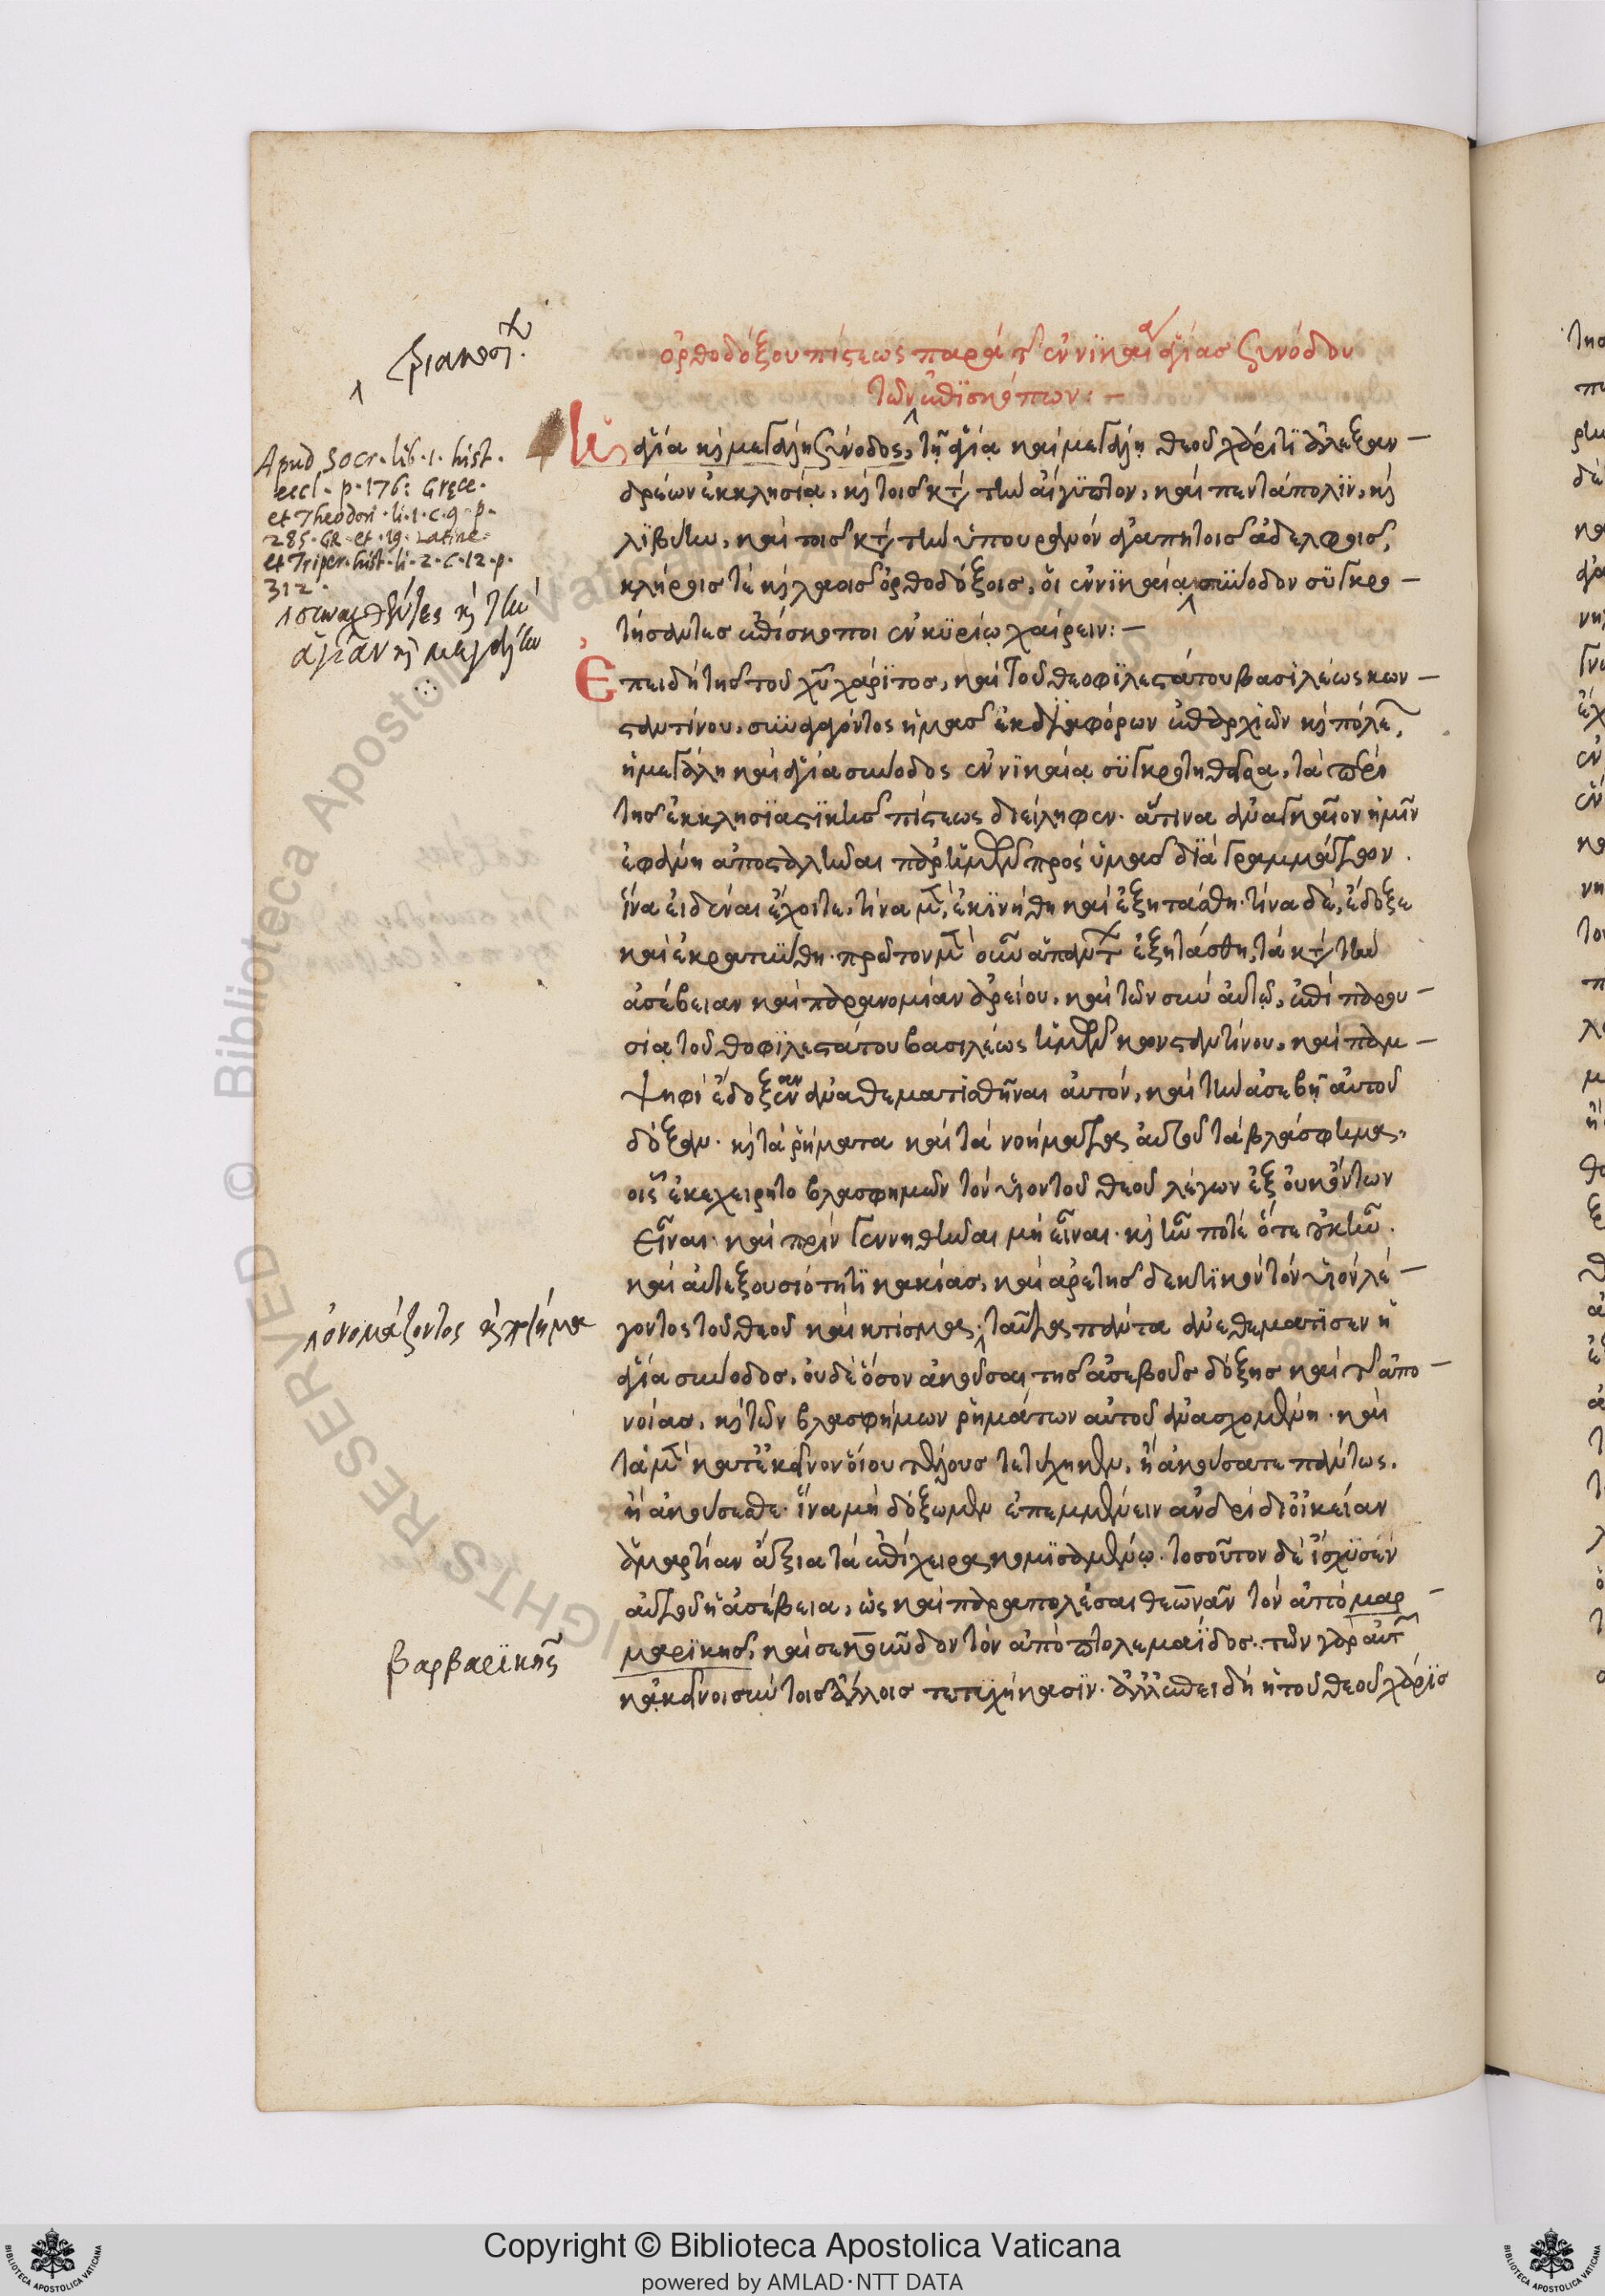 τριακοσί
ὀρθοδόξου πίστεως παρὰ τῆς ἐν νϊκαία ἁγίας συνόδου
τῶν ἐπϊσκόπων:—
Apud Socr. lib. 1. hist.
eccl. p. 176: Gręce.
et Theodori. li. 1. c. 9. p.
285. GR. et. 19. Latine.
et Triper. hist. li. 2. c. 12. p.
312.
συναχθέντες κ τὴν
ἁγίαν κ μεγάλην
ἡ ἁγία κ μεγάλη σύνοδος, τῆ ἁγία καὶ μεγάλη θεοῦ χάριτϊ ἀλεξαν—
δρέων ἐκκλησία, κ τοισ κτ τὴν ἀίγϋπτον, καὶ πεντάπολϊν, κ
λϊβύην, καὶ τοισ κτ τὴν ὑπουρανὸν ἀγαπητοισ ἀδελφοισ,
κλήροισ τὲ κ λαοισ ὀρθοδόξοισ, ὁι ἐν νϊκαία σύνοδον συγκρο—
τήσαντεσ ἐπίσκοποι ἐν κϋρίω χαίρειν:—
Ἐπειδὴ τῆσ τοῦ χυ χάρϊτοσ, καὶ τοῦ θεοφϊλεστάτου βασιλέως κων—
σταντίνου, συναγαγόντος ἡμασ ἐκ διαφόρων ἐπαρχιῶν κ πόλε,
ἡ μεγάλη καὶ ἁγία σύνοδος ἐν νϊκαία συγκροτηθεῖσα, τὰ περὶ
τῆσ ἐκκλησϊαστϊκῆσ πίστεως διείληφεν. ἅτινα ἀναγκαῖον ἡμῖν
ἐφάνη ἀποσταλῆναι παρ ἡμῶν πρὸς ὑμασ δϊὰ γραμμάτων.
ἵνα ειδέναι ἔχοιτε, τίνα μ ἐκινήθη καὶ ἐξητάσθη. τίνα δὲ, ἔδοξε
καὶ ἐκρατύνθη. πρῶτον μ οῦν ἁπάντ ἐξητάσθη, τὰ κτ τὴν
ἀσέβειαν καὶ παρανομίαν ἀρείου, καὶ τῶν σὺν ἀυτῶ, ἐπὶ παρου—
σία τοῦ θεοφϊλεστάτου βασιλέως ἡμῶν κονσταντίνου, καὶ παμ—
ψηφὶ ἔδοξεν ἀναθεματισθῆναι ἀυτόν, καὶ τὴν ἀσεβῆ ἀυτοῦ
δόξαν. κ τὰ ῥήματα καὶ τὰ νοήματα ἀυτοῦ τὰ βλάσφημα,
οἷς ἐκεχειρητο βλασφημῶν τὸν υἱον τοῦ θεοῦ λέγων ἐξ ὀυκ ὄντων
εἶναι. καὶ πρὶν γεννηθῆναι μὴ εἶναι. κ ἦν ποτὲ ὅτε οὐκ ἦν.
καὶ ἀυτεξουσιότητϊ κακίασ, καὶ ἀρετησ δεκτϊκὸν τὸν υἱὸν λέ—
γοντος τοῦ θεοῦ καὶ κτίσμα, ταῦτα πάντα ἀνεθεμάτϊσεν ἡ
ὀνομάζοντος κ ποίημα
ἁγία σύνοδος, ὀυδὲ ὅσον ἀκοῦσαι τησ ἀσεβοῦσ δόξησ καὶ τ ἀπο—
νοίασ, κ τῶν βλασφήμων ῥημάτων αὐτοῦ ἀνασχομένη. καὶ
τὰ μ κατ ἐκεῖνον ὁίου τέλουσ τετύχηκεν, ἢ ἀκούσατε πάντως,
ἢ ἀκούσεσθε. ἵνα μὴ δόξωμεν ἐπεμβαίνειν ἀνδρὶ δι ὀικείαν
ἁμαρτίαν ἄξια τὰ ἐπίχειρα κομισαμένω. τοσοῦτον δὲ ἴσχϋσεν
ἀυτοῦ ἡ ἀσέβεια, ὡς καὶ παραπολέσαι θεωνᾶν τὸν ἀπὸ μαρ—
μαρϊκησ, καὶ σεκοῦνδον τὸν ἀπὸ πτολεμαΐδοσ. τῶν γὰρ ἀυτ
βαρβαρϊκῆς
κἀκεῖνοι σὺν τοισ ἄλλοισ τετυχήκασϊν. ἀλλ ἐπειδὴ ἡ τοῦ θεοῦ χάρϊσ
Copyright © Biblioteca Apostolica Vaticana
powered by AMLAD·NTT DATA